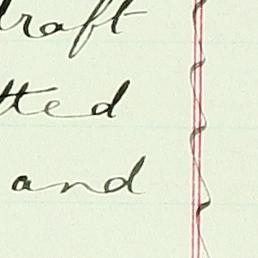 draft
tted
and